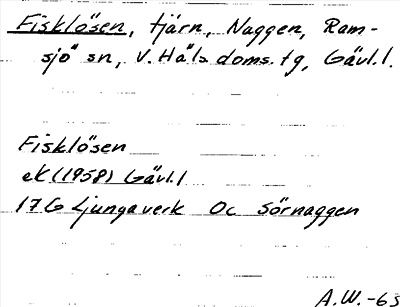 Fisklösen, tjärn, Naggen, Ram-
sjö sn, V. Häls doms. tg, Gävl. l.
Fisklösen
eK (1958) Gävl. l
17G Ljungaverk Oc Sörnaggen
A.W.-63